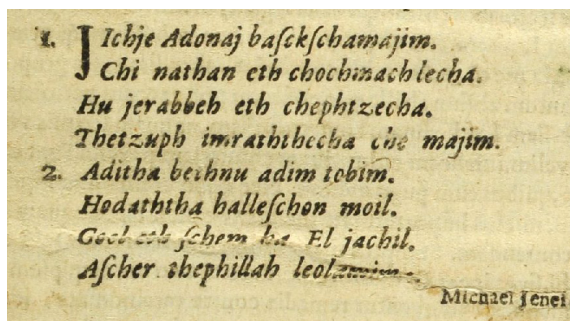 1. JIchje Adonaj baſckſchamajim.
Chi nathan eth chochmach lecha.
Hu jerabbeh eth chephtzecha.
Thetzuph imraththecha che majim.
2. Aditha bethnu adim tobim.
Hodaththa halleſchon moil.
eth ſchem ha El jachil.
Aſcher thephillah
Michael Jenei